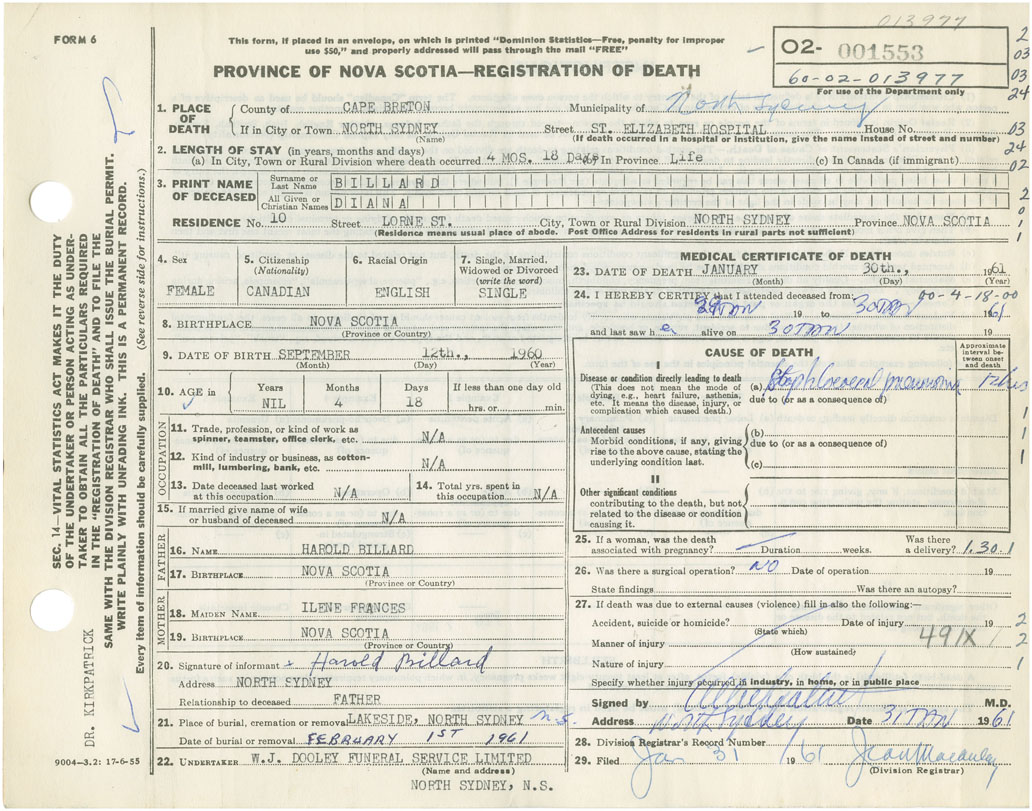 013977
FORM 6
This form, if placed in an envelope, on which is printed "Dominion Statistics—Free, penalty for improper
use $50," and properly addressed will pass through the mail "FREE"
02- 001553
60-02-013977
For use of the Department only
2
03
03
24
PROVINCE OF NOVA SCOTIA—REGISTRATION OF DEATH
1. PLACE OF DEATH
County of CAPE BRETON Municipality of North Sydney
If in City or Town NORTH SYDNEY Street ST. ELIZABETH HOSPITAL House No.
(Name) (If death occurred in a hospital or institution, give the name instead of street and number)
03
24
02
2. LENGTH OF STAY (in years, months and days)
(a) In City, Town or Rural Division where death occurred 4 MOS. 18 Days In Province Life (c) In Canada (if immigrant)
3. PRINT NAME OF DECEASED
Surname or Last Name BILLARD
All Given or Christian Names DIANA
2
0
1
1
RESIDENCE No. 10 Street LORNE ST. City, Town or Rural Division NORTH SYDNEY Province NOVA SCOTIA
(Residence means usual place of abode. Post Office Address for residents in rural parts not sufficient)
4. Sex
FEMALE
5. Citizenship
(Nationality)
CANADIAN
6. Racial Origin
ENGLISH
7. Single, Married,
Widowed or Divorced
(write the word)
SINGLE
8. BIRTHPLACE NOVA SCOTIA
(Province or Country)
9. DATE OF BIRTH SEPTEMBER 12th., 1960
(Month) (Day) (Year)
10. AGE in
Years Months Days If less than one day old
NIL 4 18 hrs. or min.
OCCUPATION
11. Trade, profession, or kind of work as
spinner, teamster, office clerk, etc. N/A
12. Kind of industry or business, as cotton-
mill, lumbering, bank, etc. N/A
13. Date deceased last worked
at this occupation N/A
14. Total yrs. spent in
this occupation N/A
15. If married give name of wife
or husband of deceased N/A
FATHER
16. NAME HAROLD BILLARD
17. BIRTHPLACE NOVA SCOTIA
(Province or Country)
MOTHER
18. MAIDEN NAME ILENE FRANCES
19. BIRTHPLACE NOVA SCOTIA
(Province or Country)
20. Signature of informant x Harold Billard
Address NORTH SYDNEY
Relationship to deceased FATHER
21. Place of burial, cremation or removal LAKESIDE, NORTH SYDNEY N.S.
Date of burial or removal FEBRUARY 1ST 1961
22. UNDERTAKER W.J. DOOLEY FUNERAL SERVICE LIMITED
(Name and address)
NORTH SYDNEY, N.S.
MEDICAL CERTIFICATE OF DEATH
23. DATE OF DEATH JANUARY 30th., 1961
(Month) (Day) (Year)
24. I HEREBY CERTIFY that I attended deceased from: 00-4-18-00
JAN 19 to 30 JAN 1961
and last saw her alive on 30 JAN 19
CAUSE OF DEATH
Approximate
interval be-
tween onset
and death
I
Disease or condition directly leading to death
(This does not mean the mode of
dying, e.g., heart failure, asthenia,
etc. It means the disease, injury, or
complication which caused death.)
(a) Staphlococcal pneumonia 12 hrs
due to (or as a consequence of)
Antecedent causes
Morbid conditions, if any, giving
rise to the above cause, stating the
underlying condition last.
(b)
due to (or as a consequence of)
(c)
1
1
II
Other significant conditions
contributing to the death, but not
related to the disease or condition
causing it.
25. If a woman, was the death
associated with pregnancy? Duration weeks. Was there
a delivery? 1.30.1
26. Was there a surgical operation? NO Date of operation 19
State findings Was there an autopsy?
27. If death was due to external causes (violence) fill in also the following:—
Accident, suicide or homicide? Date of injury 19
(State which)
2
Manner of injury 491X 1
(How sustained)
2
Nature of injury
1
Specify whether injury occurred in industry, in home, or in public place
Signed by M.D.
Address North Sydney Date 31 JAN 1961
28. Division Registrar's Record Number
29. Filed Jan 31 1961 Jean Macaulay
(Division Registrar)
SEC. 14—VITAL STATISTICS ACT MAKES IT THE DUTY
OF THE UNDERTAKER OR PERSON ACTING AS UNDER-
TAKER TO OBTAIN ALL THE PARTICULARS REQUIRED
IN THE "REGISTRATION OF DEATH" AND TO FILE THE
SAME WITH THE DIVISION REGISTRAR WHO SHALL ISSUE THE BURIAL PERMIT.
WRITE PLAINLY WITH UNFADING INK. THIS IS A PERMANENT RECORD.
Every item of information should be carefully supplied. (See reverse side for instructions.)
DR. KIRKPATRICK
9004-3.2: 17-6-55